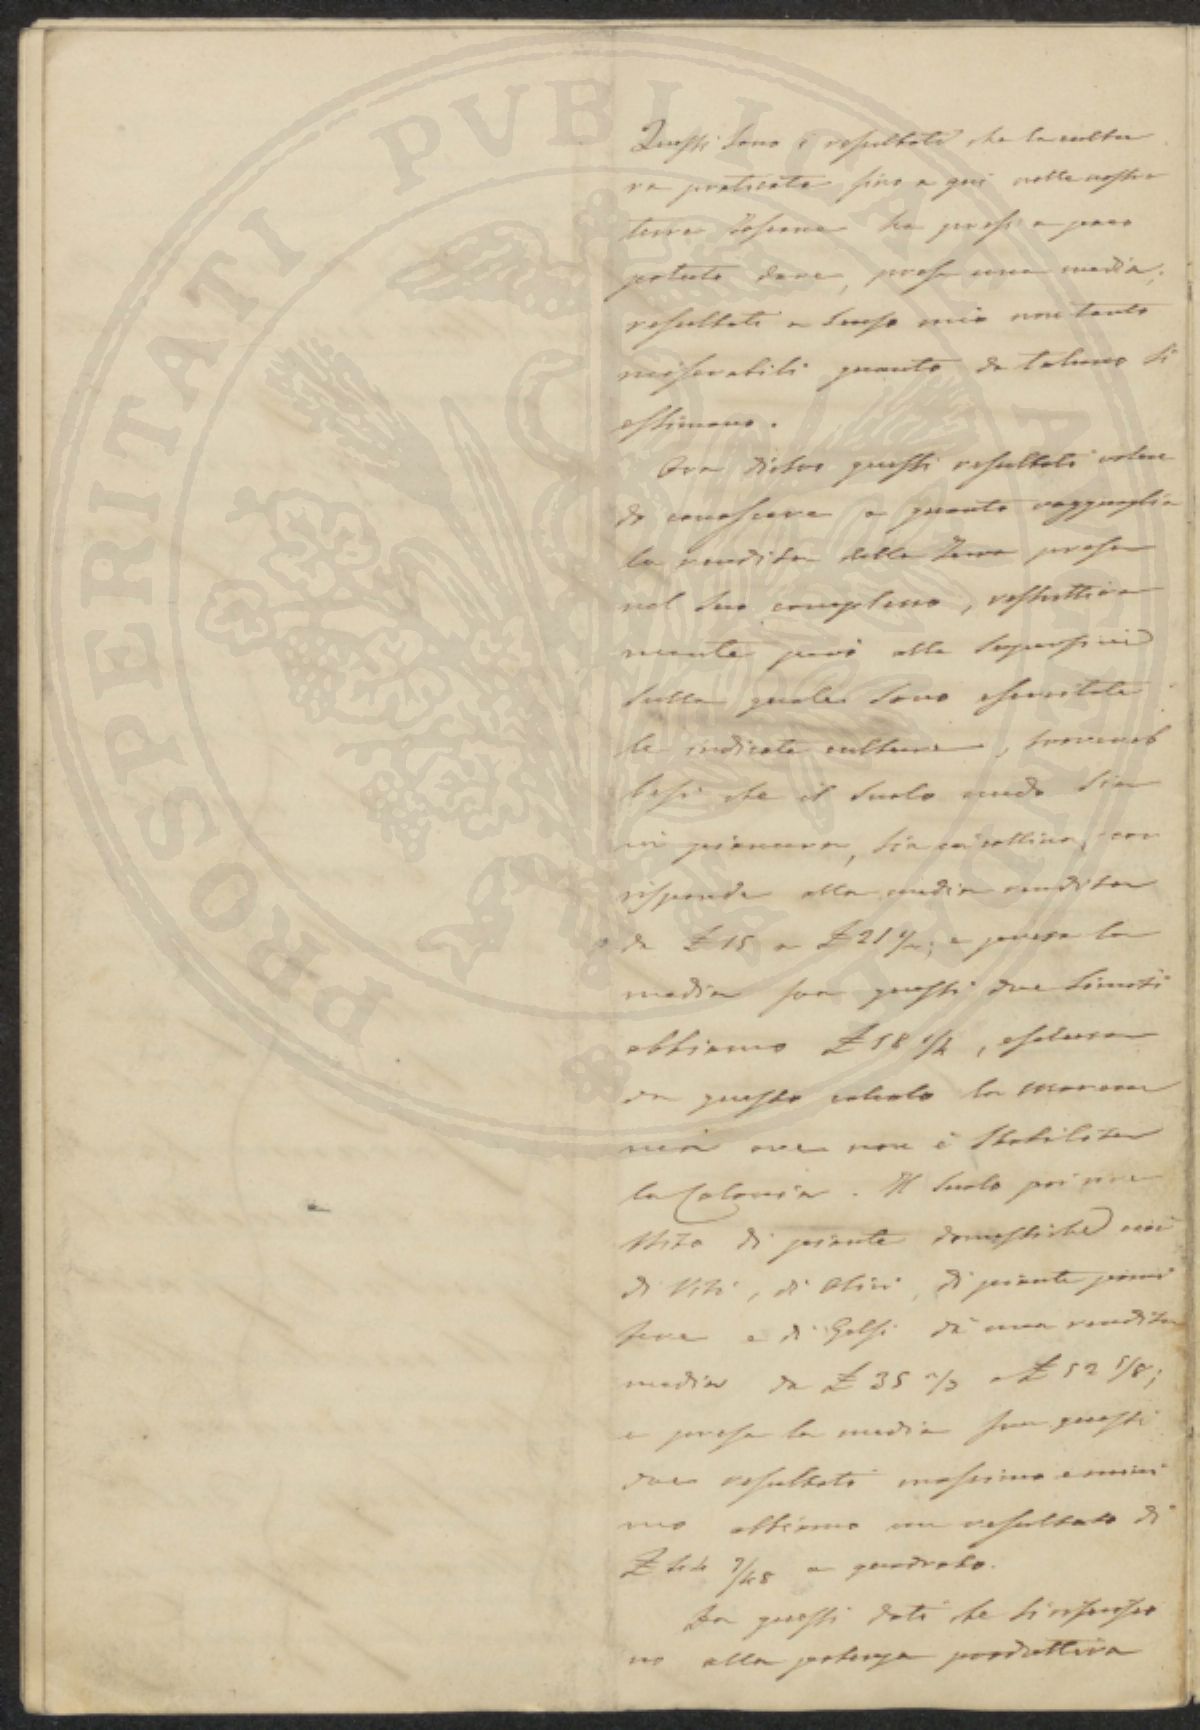 PROSPERITATI PVBLICAE AVGENDAE
Questi sono i resultati che la cultu
ra praticata fino a qui nelle nostre
terre Toscane ha presso a poco
potuto dare, presa una media;
resultati a senso mio non tanto
miserabili quanto da taluno si
estimano.
Ora dietro questi resultati volen
do conoscere a quanto ragguaglia
la rendita della Terra presa
nel suo complesso, restrittiva
mente però alla superficie
sulla quale sono esercitate
le indicate culture, trovereb
besi che il suolo nudo sia
in pianura, sia in collina, cor
risponde alla media rendita
da £ 15 a £ 21 1/2; e presa la
media fra questi due limiti
abbiamo £ 18 1/4, esclusa
da questo calcolo la Marem
ma ove non è stabilita
la Colonia. Il suolo poi inve
stito di piante domestiche cioè
di Viti, di Olivi, di piante pomi
fere e di Gelsi dà una rendita
media da £ 35 2/3 a £ 52 5/8;
e presa la media fra questi
due resultati massimo e mini
mo abbiamo un resultato di
£ 44 7/48 a quadrato.
Da questi dati che si riferisco
no alla potenza produttiva